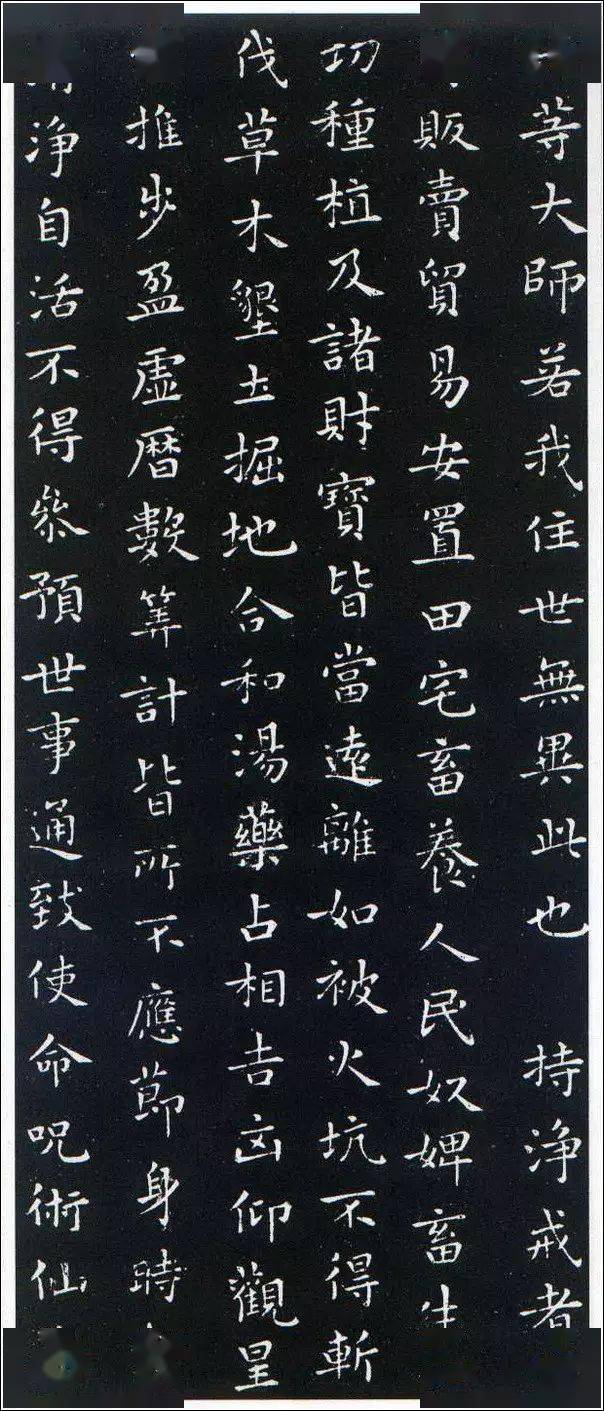 等大師若我住世無異此也　持淨戒者
販賣貿易安置田宅畜養人民奴婢畜生
切種植及諸財寶皆當遠離如被火坑不得斬
伐草木墾土掘地合和湯藥占相吉凶仰觀星
推步盈虛曆數筭計皆所不應節身時
淨自活不得參預世事通致使命呪術仙